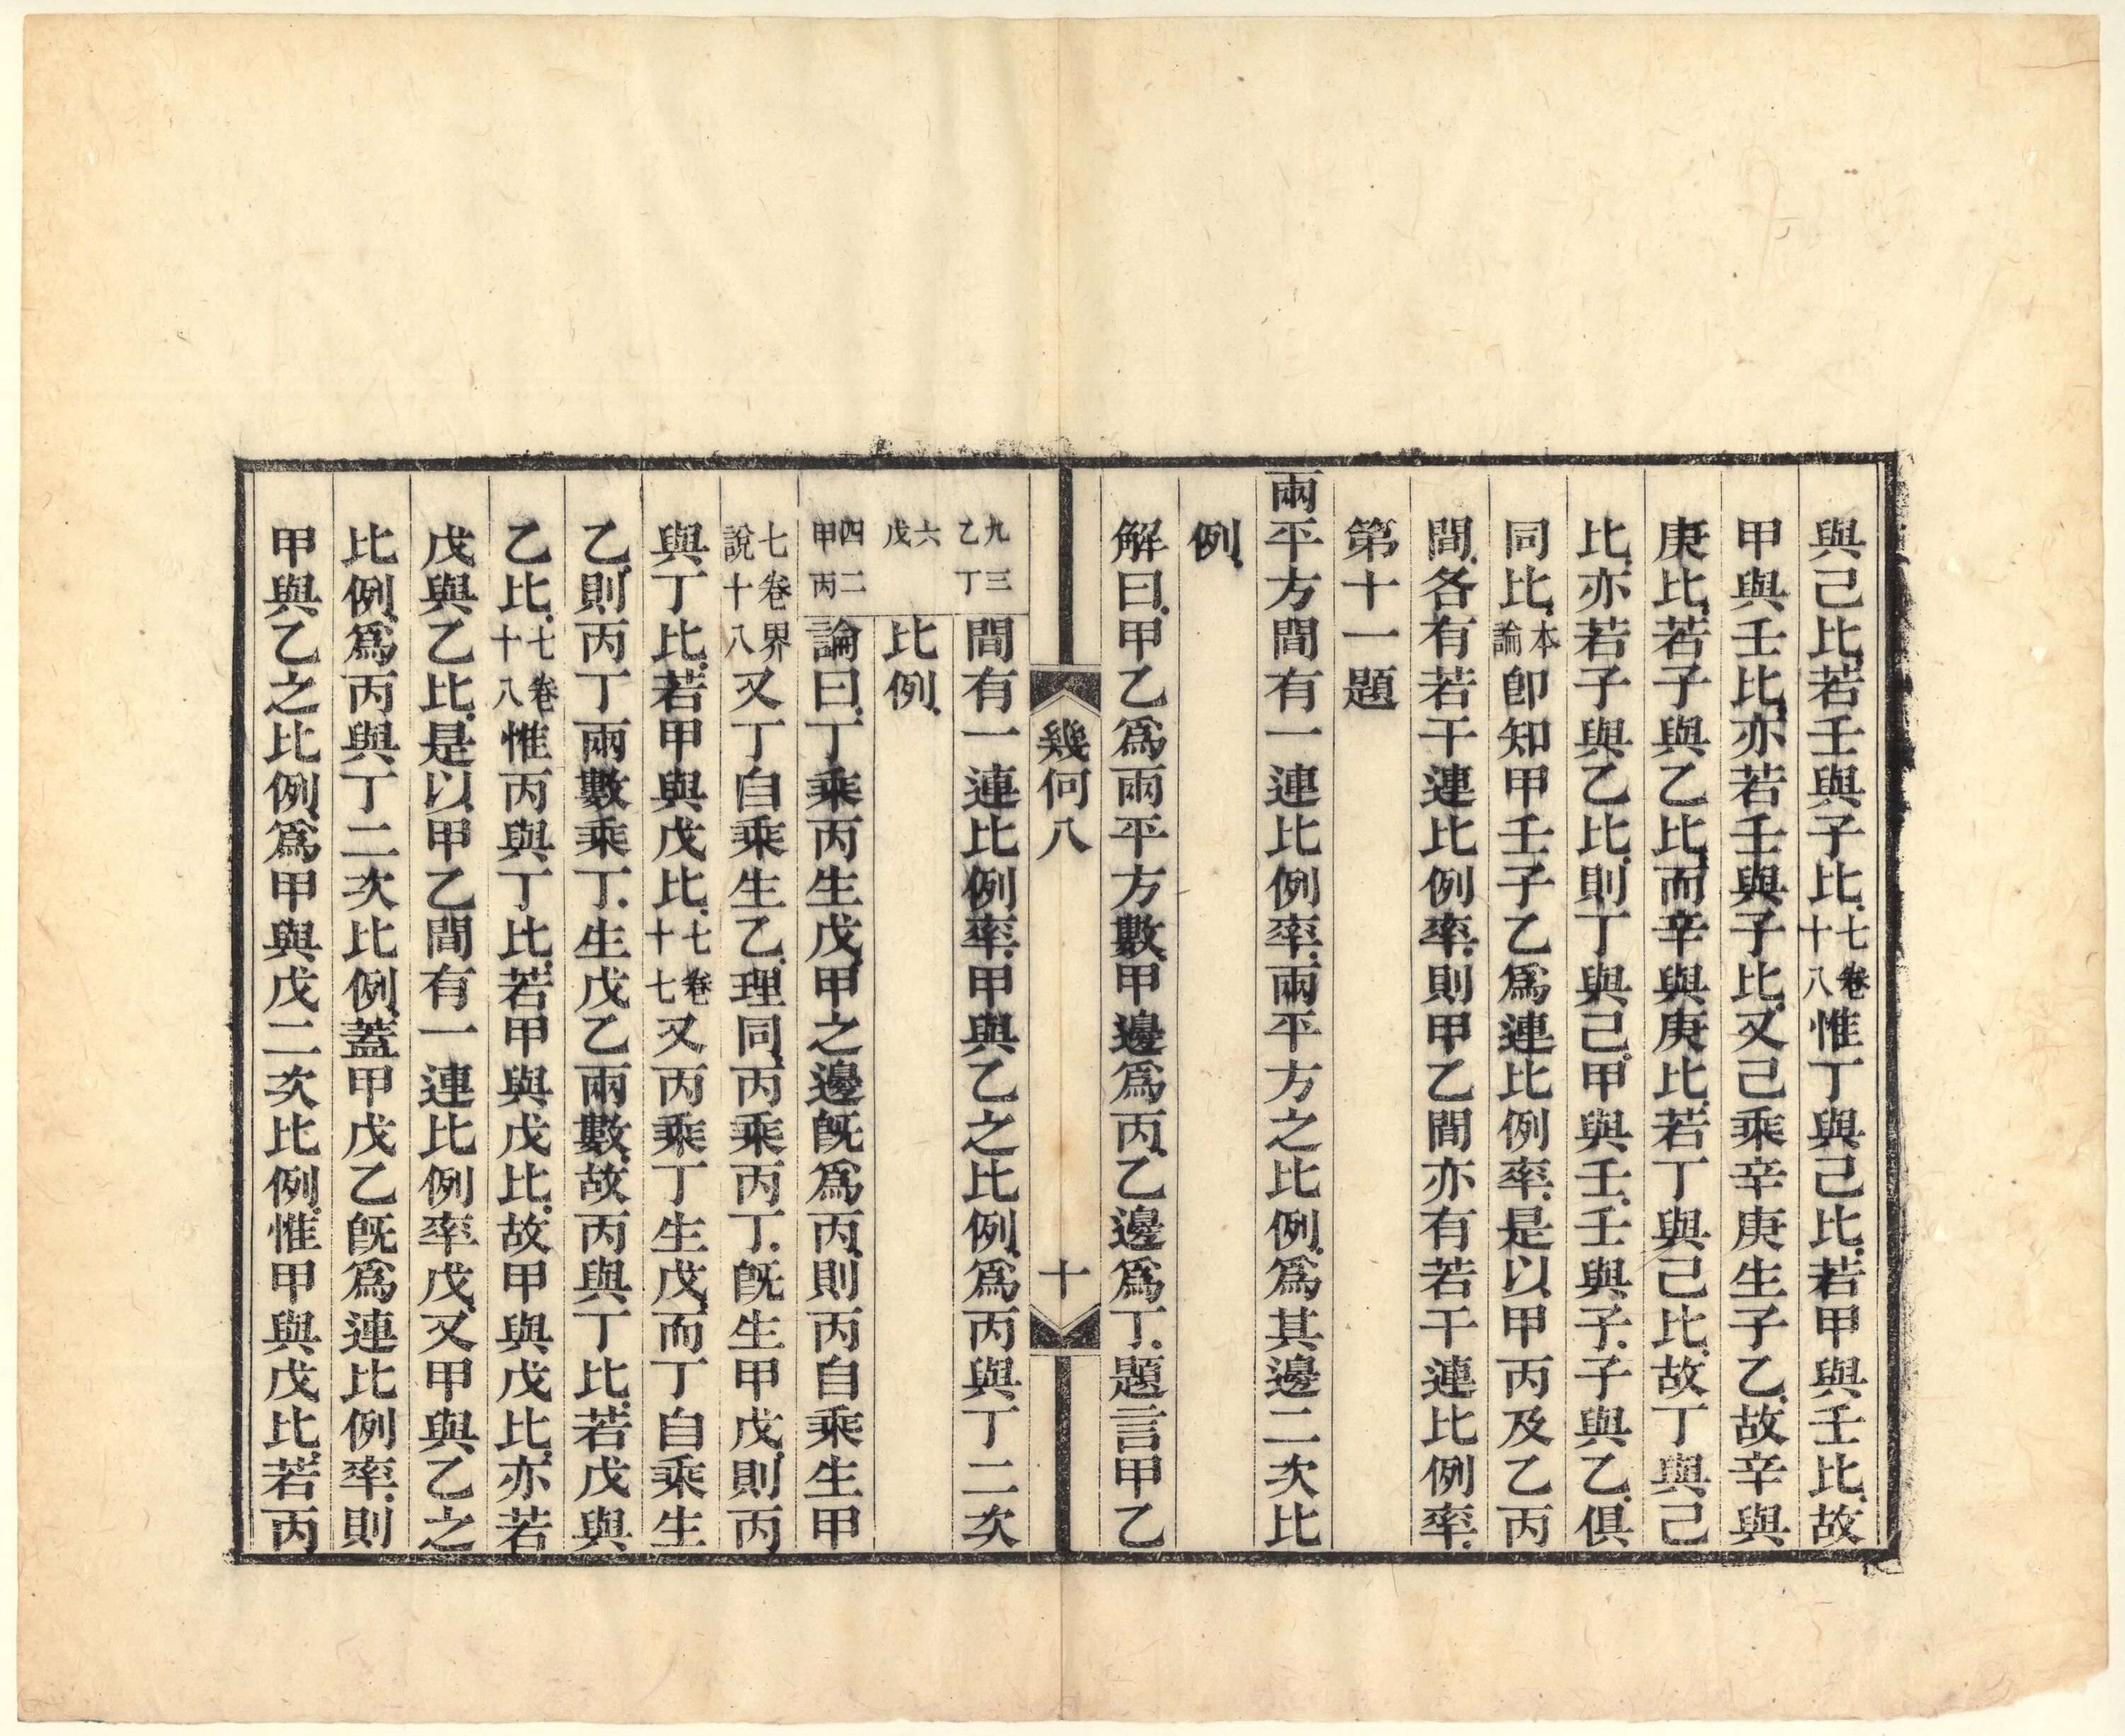 與己比、若壬與子比、七卷十八惟丁與己比、若甲與壬比、故
甲與壬比、亦若壬與子比、又己乘辛庚生子乙、故辛與
庚比、若子與乙比、而辛與庚比、若丁與己比、故丁與己
比、亦若子與乙比、則丁與己、甲與壬、壬與子、子與乙、俱
同比、本論卽知甲壬子乙爲連比例率、是以甲丙及乙丙
間、各有若干連比例率、則甲乙間亦有若干連比例率、
第十一題
兩平方間有一連比例率、兩平方之比例、爲其邊二次比
例、
解曰、甲乙爲兩平方數、甲邊爲丙、乙邊爲丁、題言甲乙
幾何八
十
九三
乙丁
間有一連比例率、甲與乙之比例、爲丙與丁二次
六
戊
比例、
四二
甲丙
論曰、丁乘丙生戊、甲之邊旣爲丙、則丙自乘生甲
七卷界說十八又丁自乘生乙、理同、丙乘丙丁、旣生甲戊、則丙
與丁比、若甲與戊比、七卷十七又丙乘丁生戊、而丁自乘生
乙、則丙丁兩數乘丁、生戊乙兩數、故丙與丁比、若戊與
乙比、七卷十八惟丙與丁比、若甲與戊比、故甲與戊比、亦若
戊與乙比、是以甲乙間有一連比例率戊、又甲與乙之
比例、爲丙與丁二次比例、蓋甲戊乙旣爲連比例率、則
甲與乙之比例、爲甲與戊二次比例、惟甲與戊比、若丙